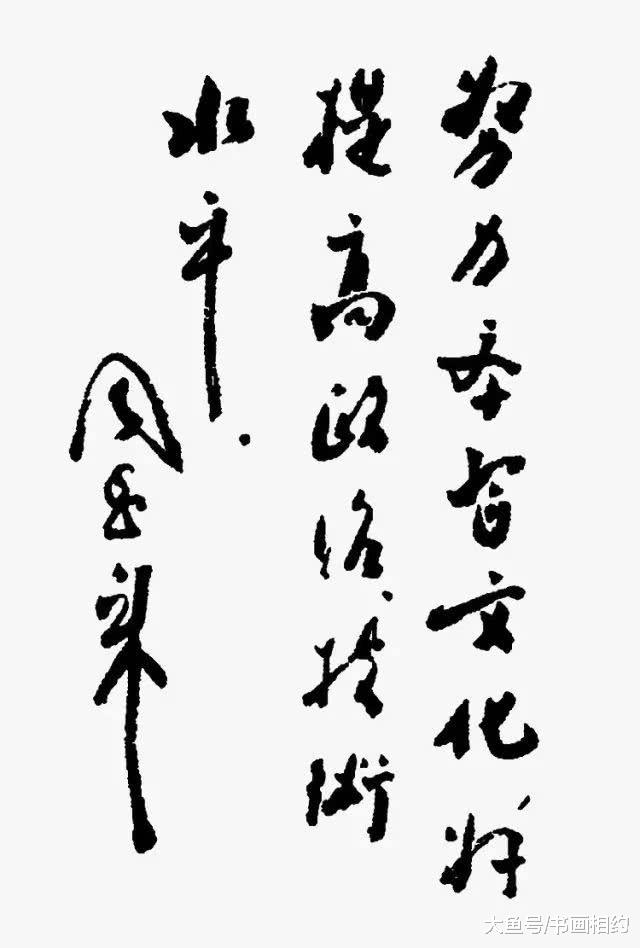 努力学習文化，并
提高政治、技術
水平．
周恩来
大鱼号/书画相约